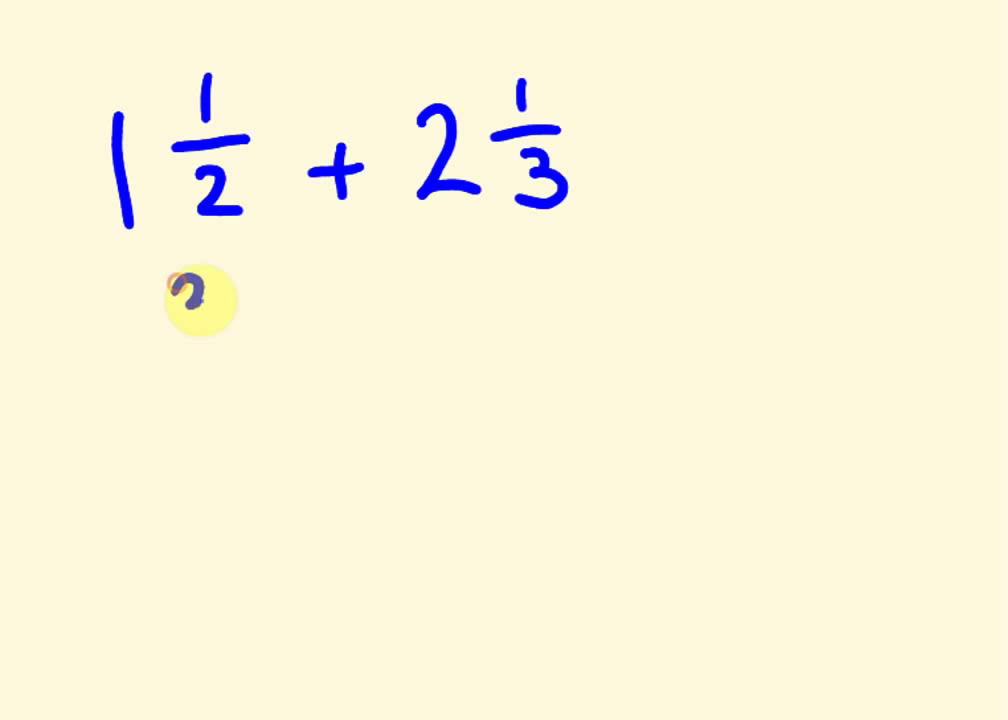 1 1/2 + 2 1/3